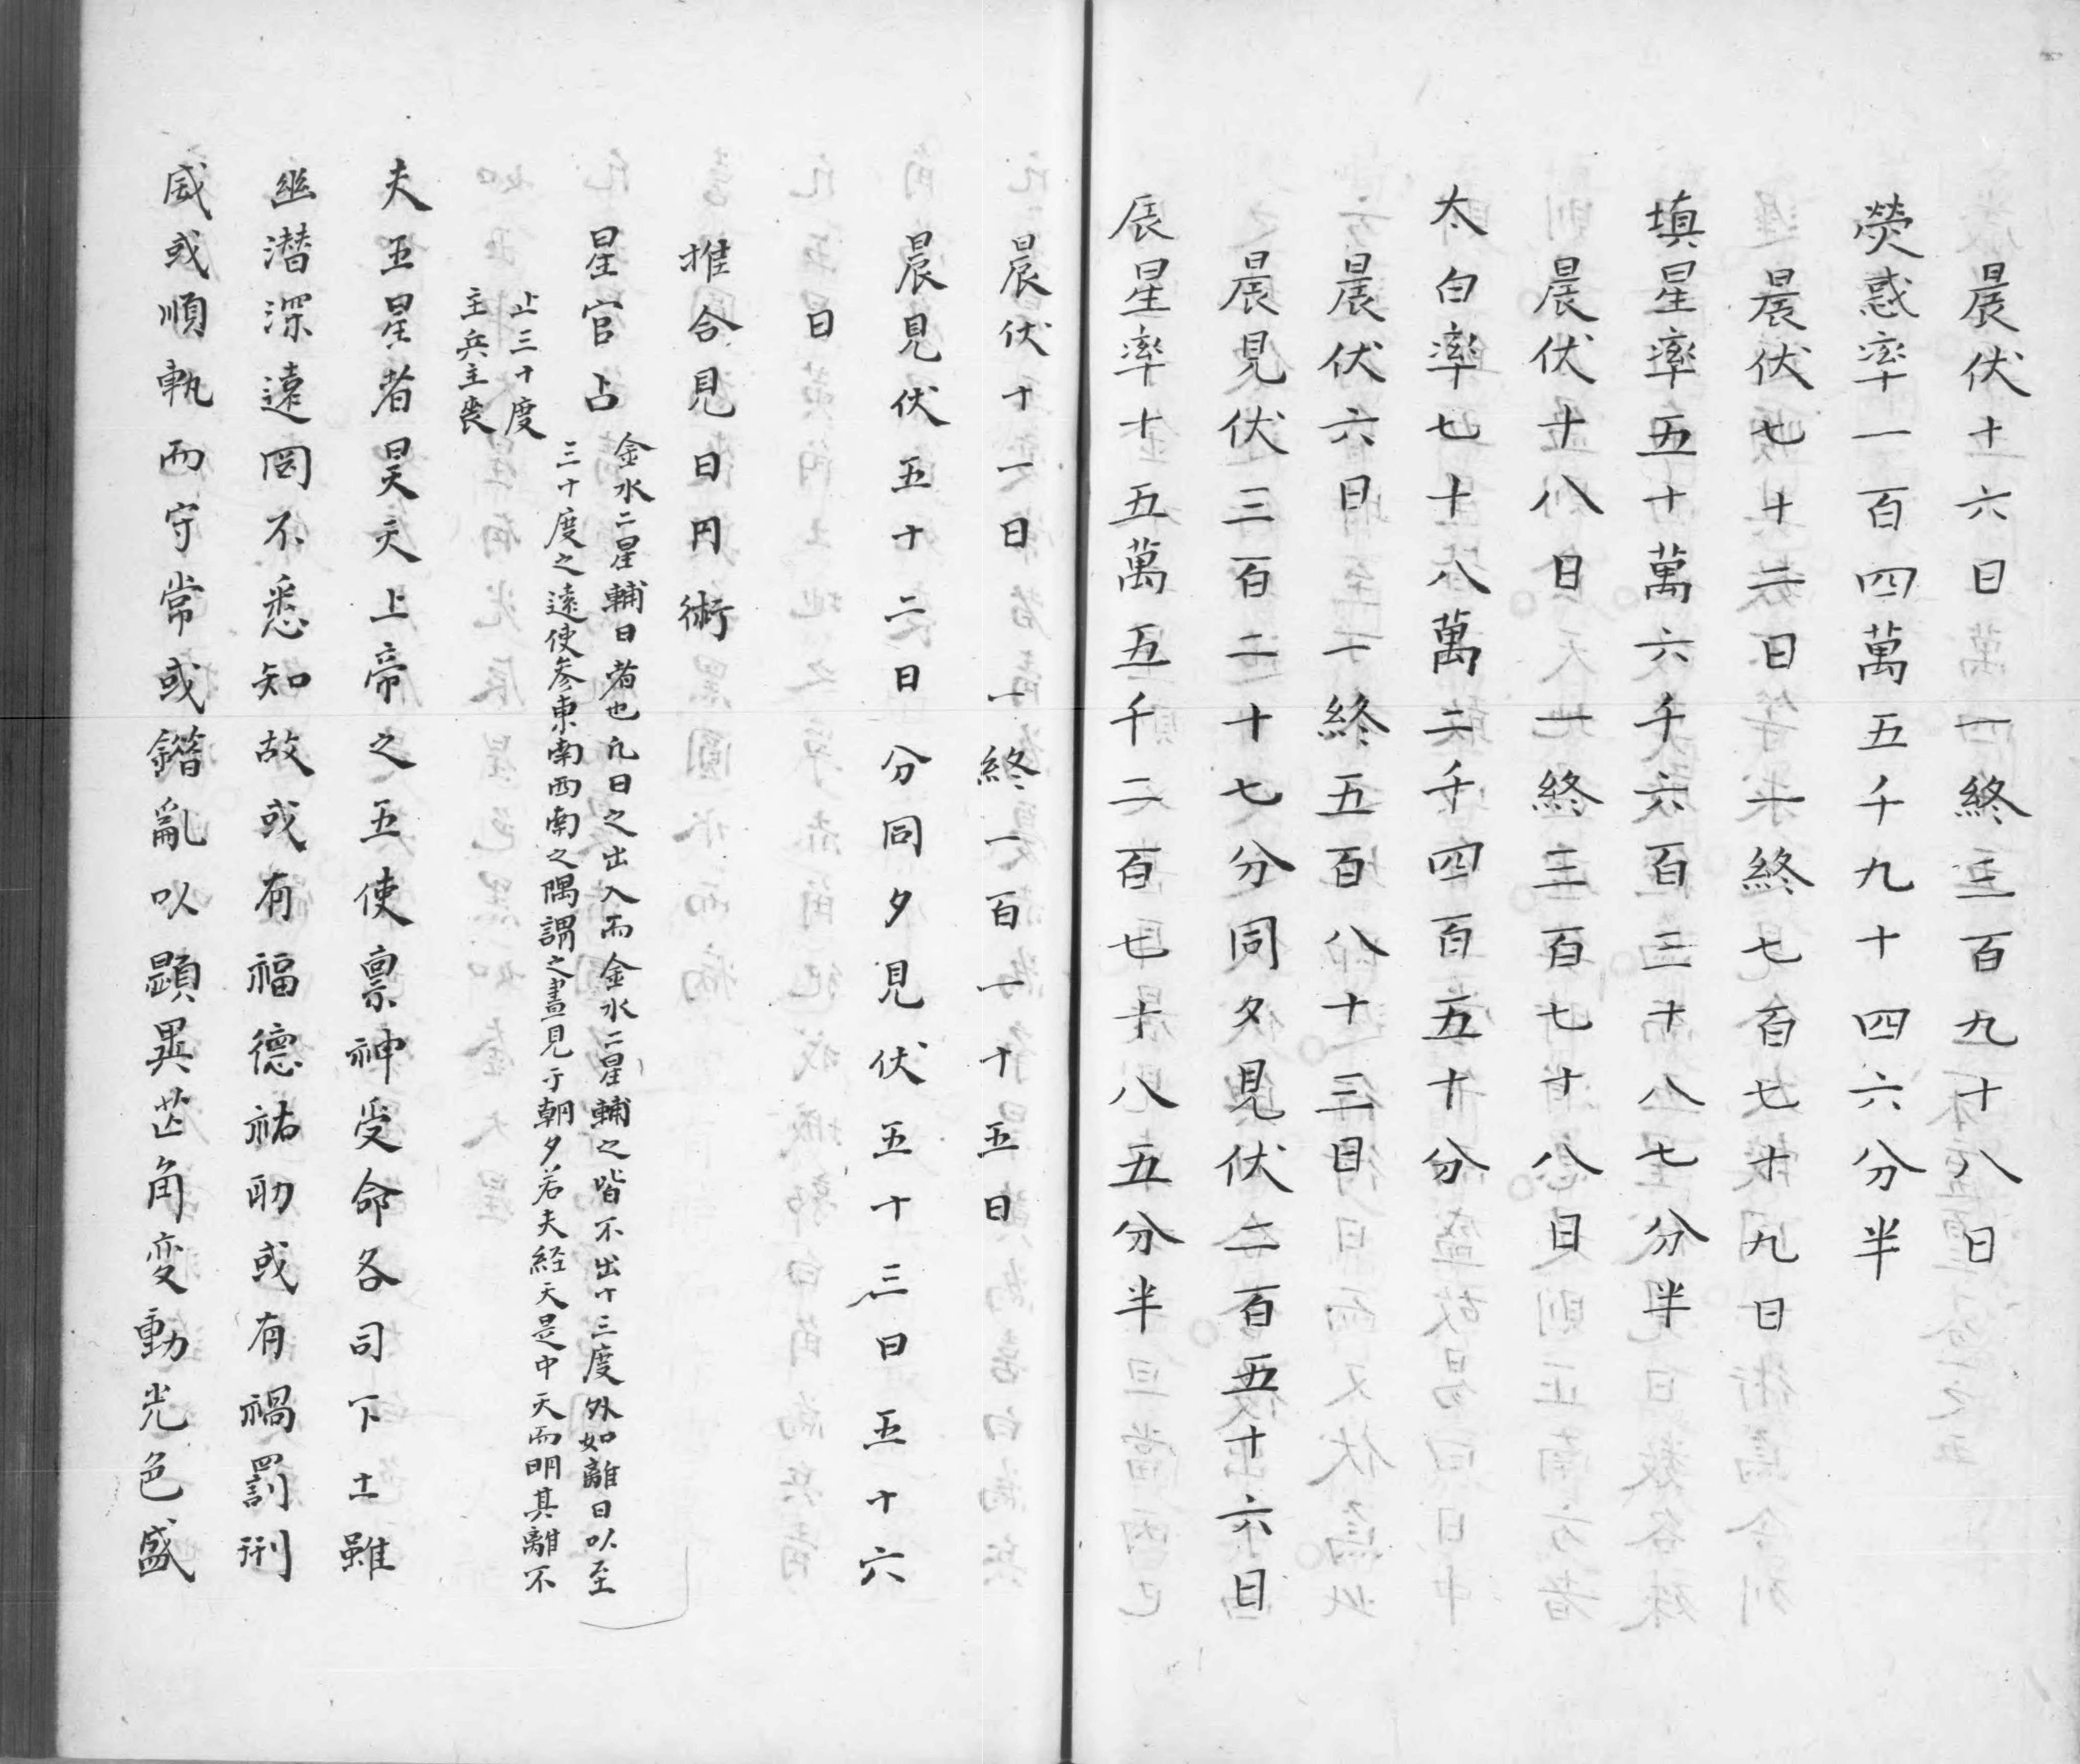 晨伏十六日　一終三百九十八日
熒惑率一百四萬五千九十四六分半
晨伏七十二日　一終七百七十九日
填星率五十萬六千六百三十八七分半
晨伏十八日　一終三百七十八日
太白率七十八萬二千四百五十分
晨伏六日　一終五百八十三日
晨見伏三百二十七分同夕見伏二百五十六日
辰星率十五萬五千二百七十八五分半
晨伏十一日　一終一百一十五日
晨見伏五十二日　分同夕見伏五十三日五十六
日
推合見日円術
星官占
金水二星輔日者也凢日之出入而金水二星輔之皆不出十三度外如離日以至
三十度之遠使参東南西南之隅謂之晝見于朝夕若夫経天是中天而明其離不
止三十度
主兵主喪
夫五星者昊天上帝之五使禀神受命各司下土雖
幽潜深遠罔不悉知故或有福德祐助或有禍罰刑
威或順軌而守常或錯亂以顕異芒角変動光色盛